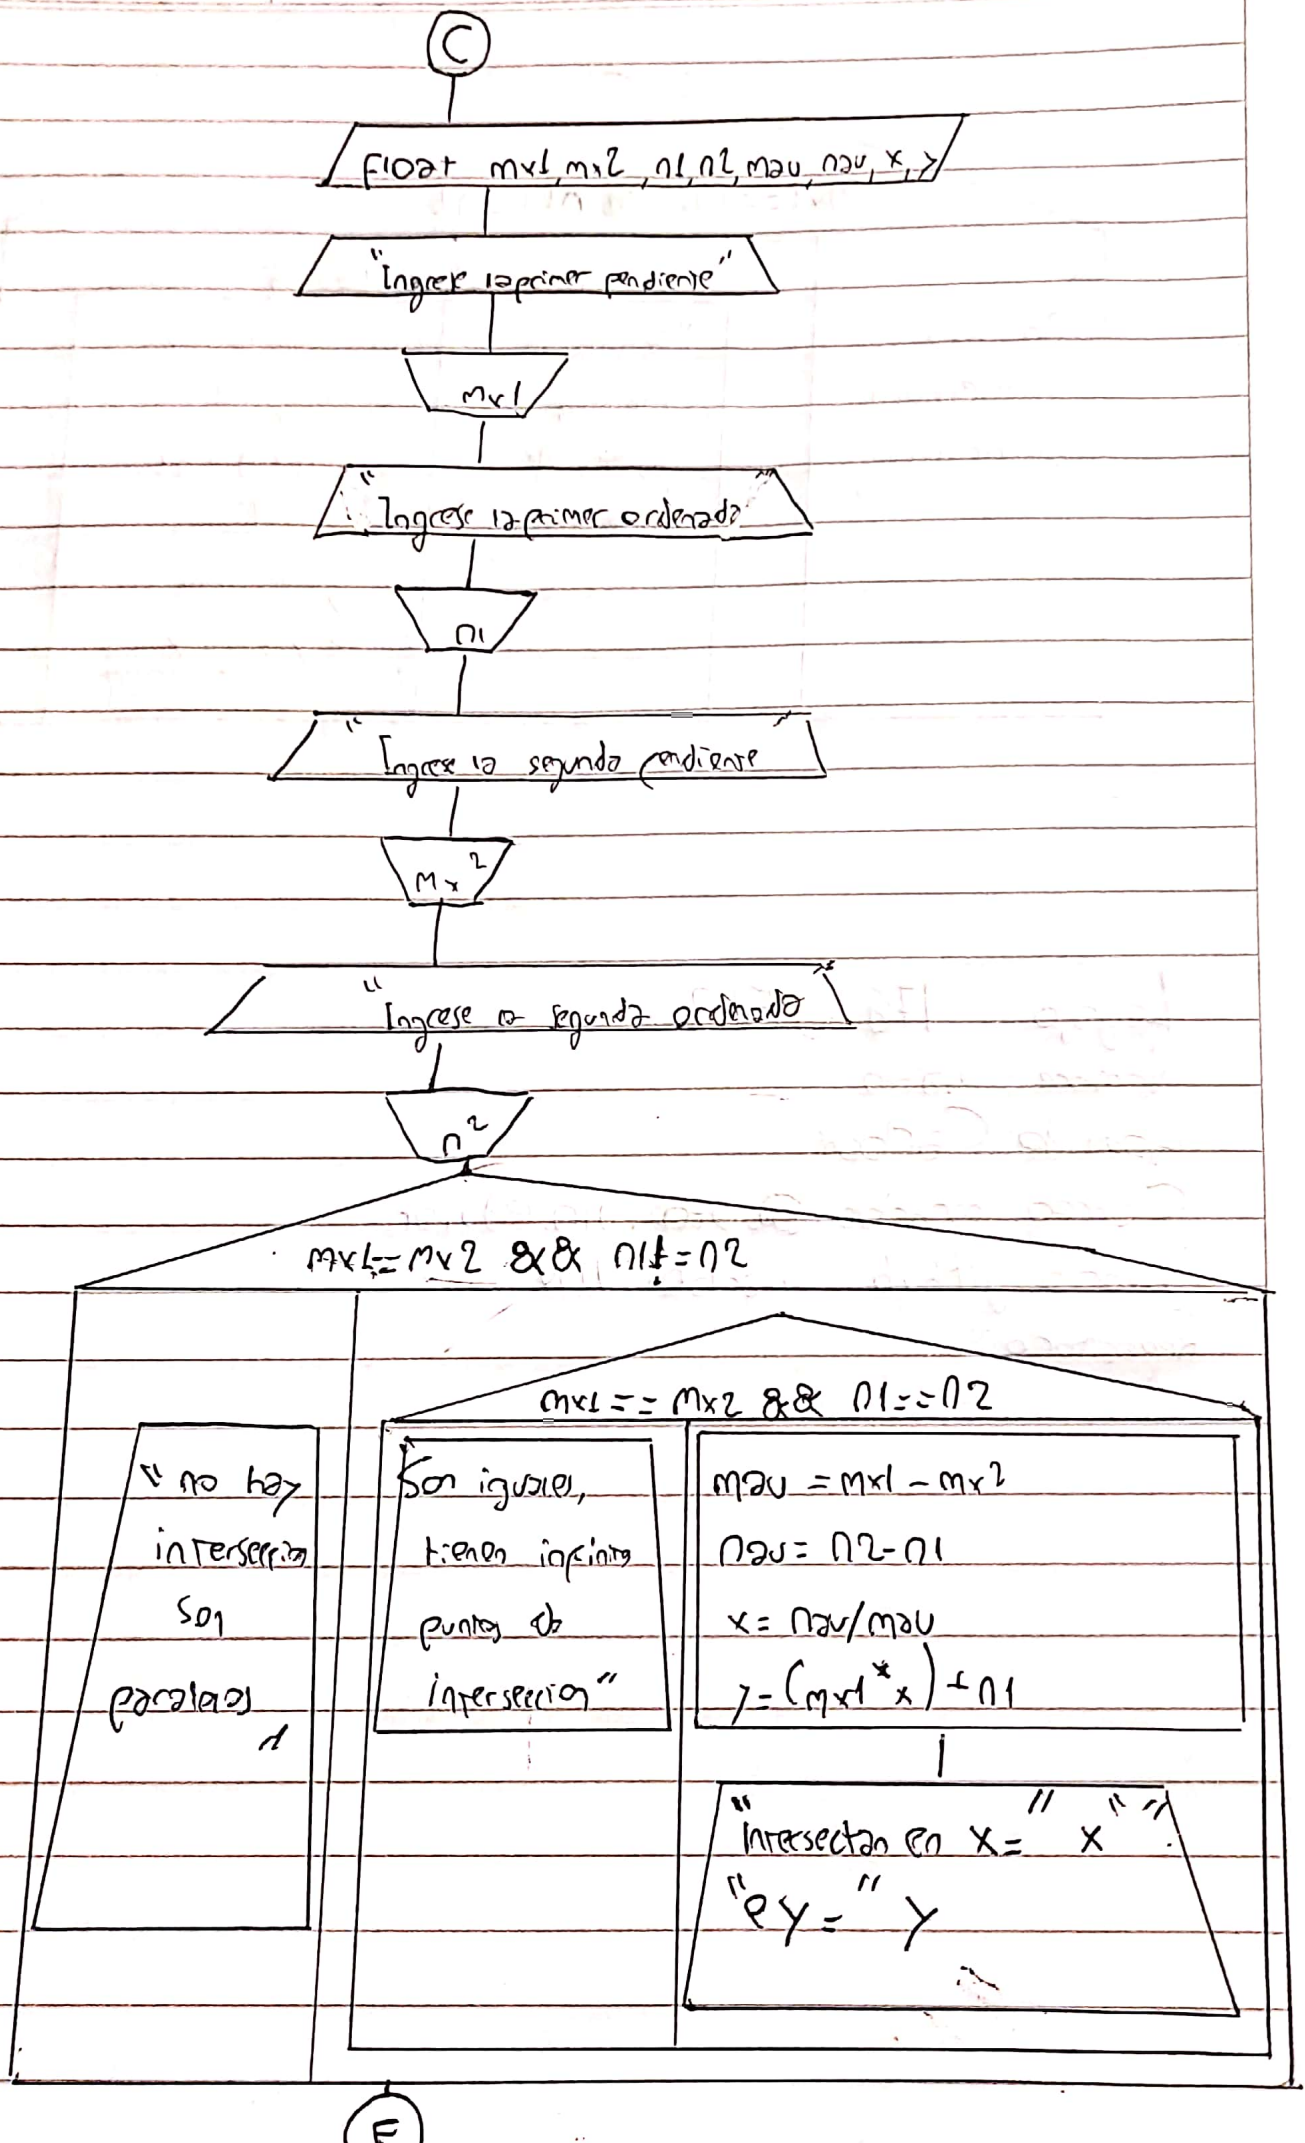 C
float mx1, mx2, n1, n2, mau, nau, x, y
"Ingrese la primer pendiente"
mx1
"Ingrese la primer ordenada"
n1
"Ingrese la segunda pendiente"
Mx2
"Ingrese la segunda ordenada"
n2
mx1==mx2 && n1!=n2
mx1==mx2 && n1==n2
"no hay
interseccion
son
paralelas"
"Son iguales,
tienen infinitos
puntos de
interseccion"
mau = mx1 - mx2
nau = n2-n1
x= nau/mau
y=(mx1*x)+n1
"Intersectan en x=" x " "
"e y=" y
F